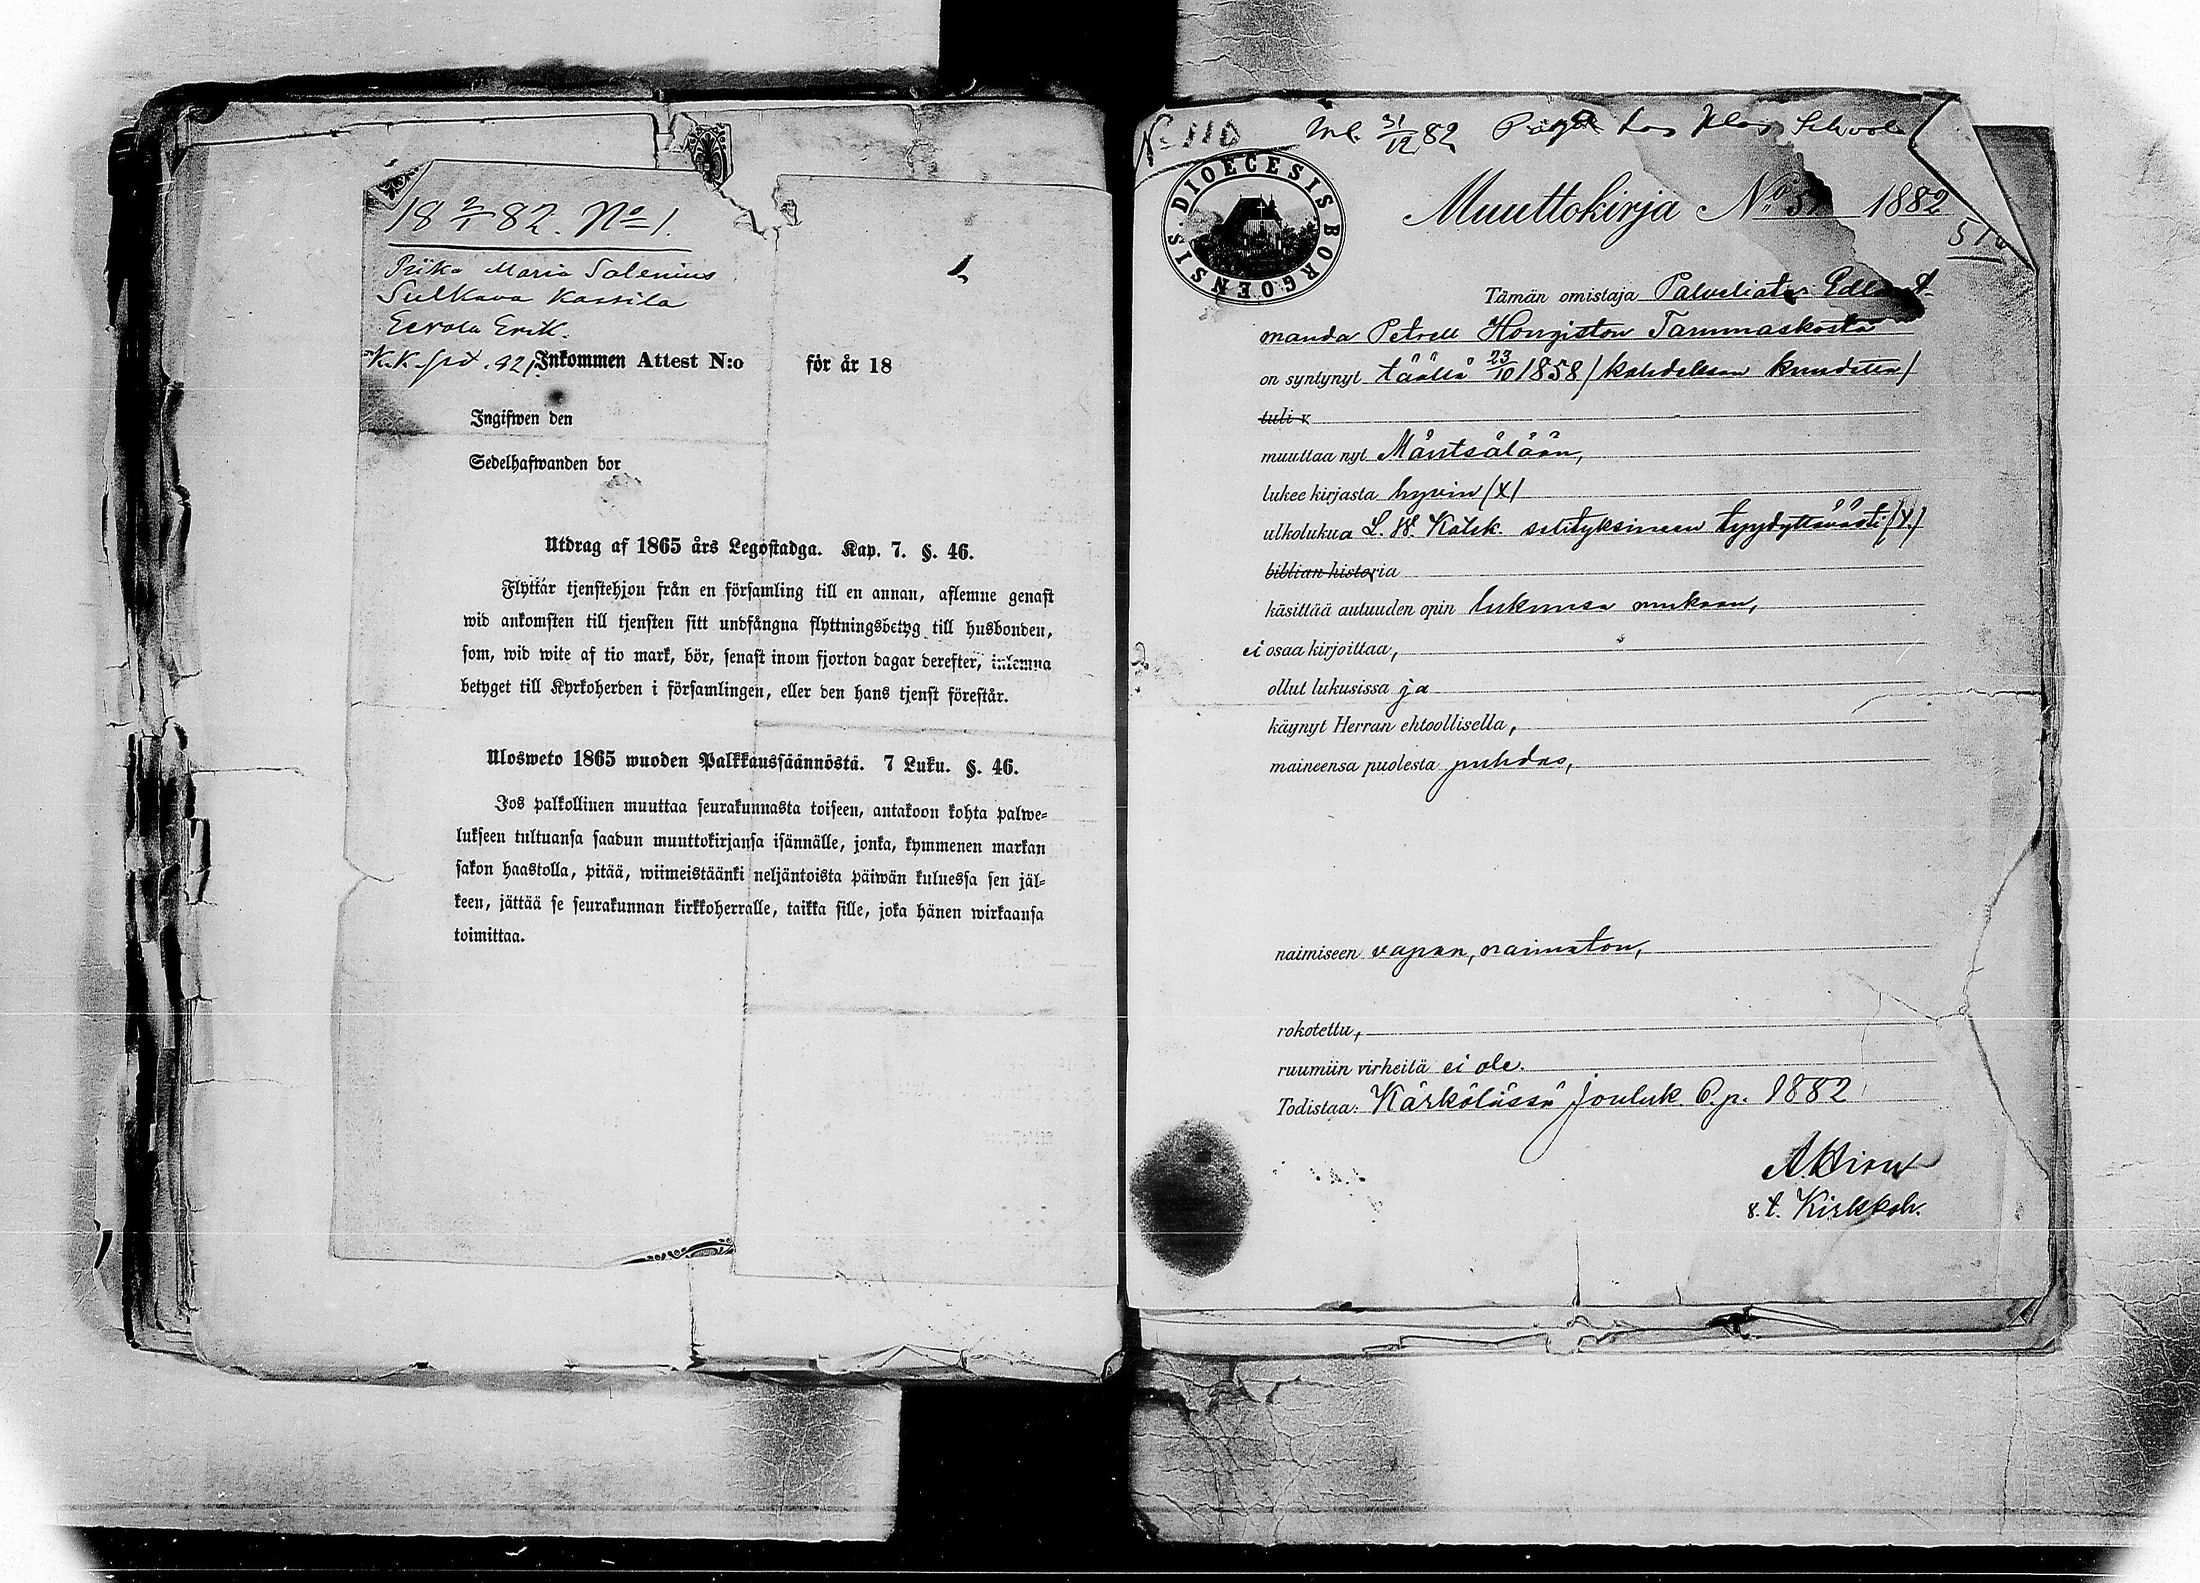 18 2/1 82. No 1.
Piika Maria Salenius
Sulkava Kassila
Eerola Erik.
K.K. 
Inkommen Attest N:o för år 18
Ingifwen den
Sedelhafwanden bor
Utdrag af 1865 års Legostadga. Kap. 7. §. 46.
Flyttar tjenstehjon från en församling till en annan, aflemne genast
wid ankomsten till tjensten sitt undfångna flyttningsbetyg till husbonden,
som, wid wite af tio mark, bör, senast inom fjorton dagar derefter, inlemna
betyget till Kyrkoherden i församlingen, eller den hans tjenst förestår.
Ulosweto 1865 wuoden Palkkaussäännöstä. 7 Luku. §. 46.
Jos palkollinen muuttaa seurakunnasta toiseen, antakoon kohta palwe-
lukseen tultuansa saadun muuttokirjansa isännälle, jonka, kymmenen markan
sakon haastolla, pitää, wiimeistäänki neljäntoista päiwän kuluessa sen jäl-
keen, jättää se seurakunnan kirkkoherralle, taikka sille, joka hänen wirkaansa
toimittaa.
No 110
31/12 82
DIOECESIS BORGOENSIS.
Muuttokirja No 1882
51
Tämän omistaja Palveliatar
manda Petrell Hongiston Tammaskosta
on syntynyt täällä 23/10 1858 / kahdeksan kuudetta /
tuli
muuttaa nyt Mäntsälään,
lukee kirjasta hyvin /X/
ulkolukua L. W. Katek. selityksineen tyydyttävästi /X/
biblian historia
käsittää autuuden opin lukunsa mukaan,
ei osaa kirjoittaa,
ollut lukusissa ja
käynyt Herran ehtoollisella,
maineensa puolesta puhdas,
naimiseen vapaa, naimaton,
rokotettu,
ruumiin virheitä ei ole.
Todistaa: Kärkölässä jouluk. 6 p. 1882
v.t. Kirkkoh.